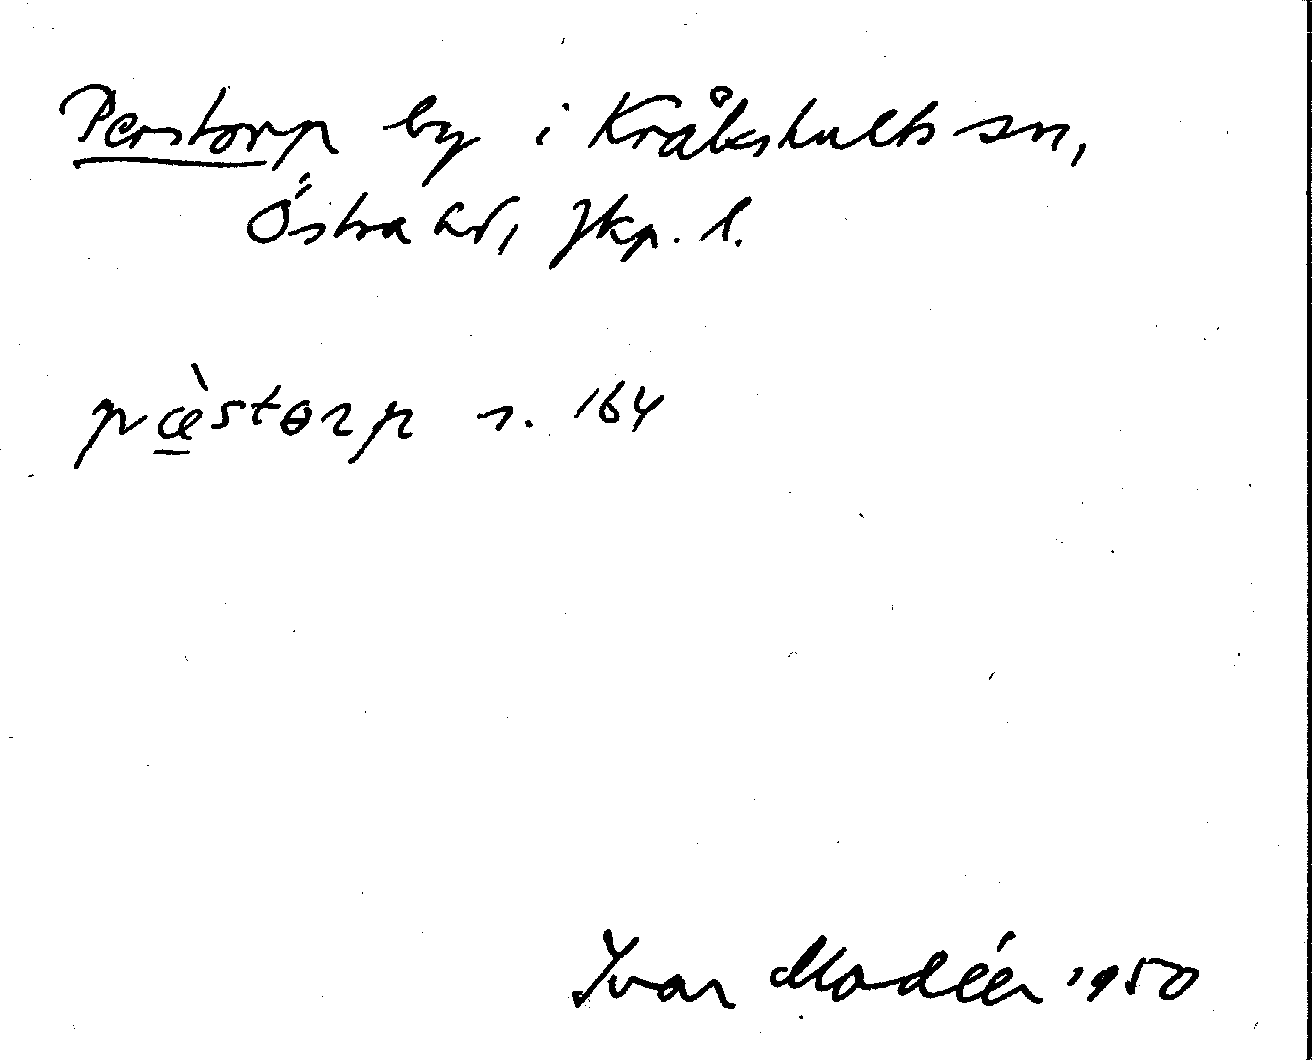 Perstorp by i Kråkshults sn,
Östra hd, Jkp. l.
pæ̠̀stɵrp s. 164
Ivar Modéer 1950